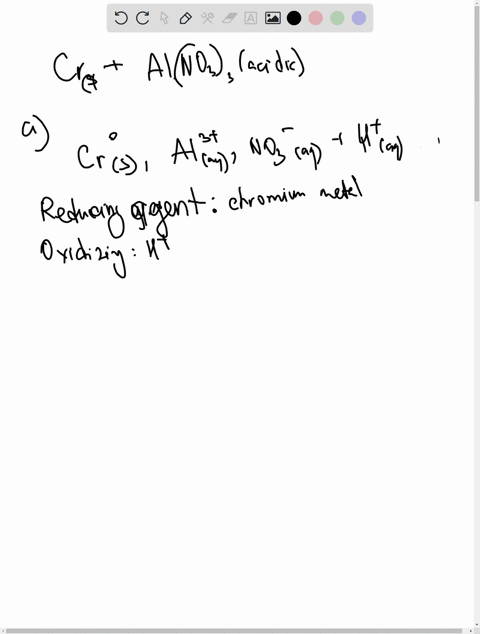 Cr(s) + Al(NO3)3 (acidic)
a)
Cr⁰(s), Al³⁺(aq), NO3⁻(aq) + H⁺(aq)
Reducing agent: chromium metal
Oxidizing: H⁺